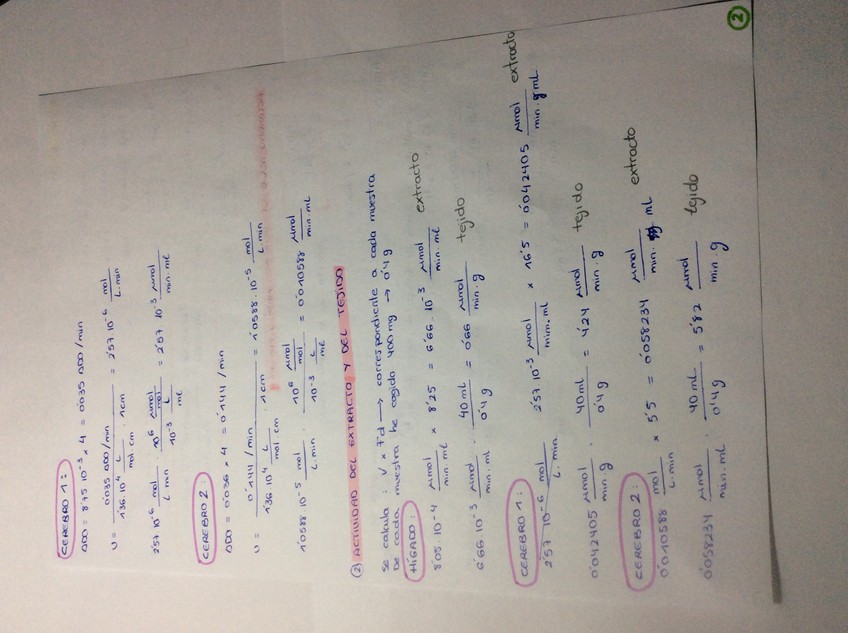 CEREBRO 1:
ΔDO = 8'75·10⁻³ × 4 = 0'035 ΔDO/min
v = 0'035 ΔDO/min / 1'36·10⁴ L/mol·cm · 1cm = 2'57·10⁻⁶ mol/L·min
2'57·10⁻⁶ mol/L·min · 10⁶ μmol/mol / 10⁻³ L/mL = 2'57·10⁻³ μmol/min·mL
CEREBRO 2:
ΔDO = 0'036 × 4 = 0'144/min
v = 0'144/min / 1'36·10⁴ L/mol·cm · 1cm = 1'0588·10⁻⁵ mol/L·min
1'0588·10⁻⁵ mol/L·min · 10⁶ μmol/mol / 10⁻³ L/mL = 0'010588 μmol/min·mL
② ACTIVIDAD DEL EXTRACTO Y DEL TEJIDO
Se calcula: V × Fd → correspondiente a cada muestra
De cada muestra he cogido 400mg → 0'4g
HÍGADO:
8'05·10⁻⁴ μmol/min·mL × 8'25 = 6'66·10⁻³ μmol/min·mL extracto
6'66·10⁻³ μmol/min·mL · 40mL/0'4g = 0'66 μmol/min·g tejido
CEREBRO 1:
2'57·10⁻⁶ mol/L·min 2'57·10⁻³ μmol/min·mL × 16'5 = 0'042405 μmol/min·mL extracto
0'042405 μmol/min·g · 40mL/0'4g = 4'24 μmol/min·g tejido
CEREBRO 2:
0'010588 mol/L·min × 5'5 = 0'058234 μmol/min·mL extracto
0'058234 μmol/min·mL · 40mL/0'4g = 5'82 μmol/min·g tejido
2